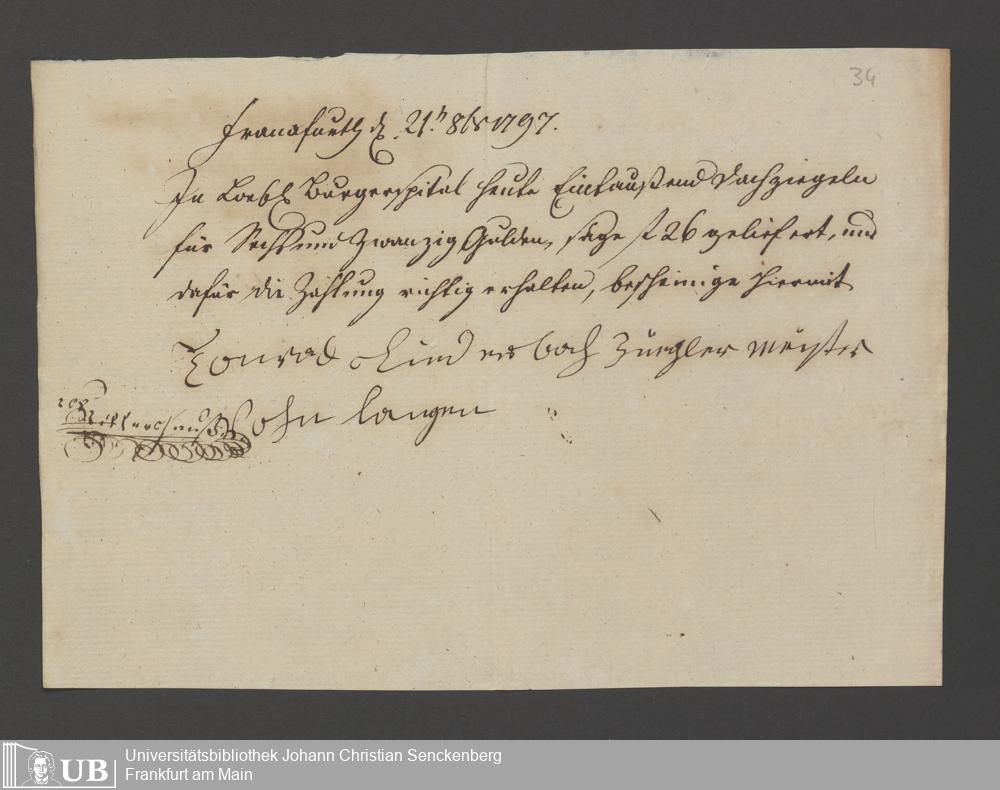 34
Franckfurth d. 21.t 8br 1797.
In Loebl. Burgerspital heute Eintaußend Dachziegeln
für Sechs und Zwanzig Gulden, sage f 26 geliefert, und
dafür die Zahlung richtig erhalten, bescheinige hiermit
Conrad Zieglermeister
langen
UB
Universitätsbibliothek Johann Christian Senckenberg
Frankfurt am Main